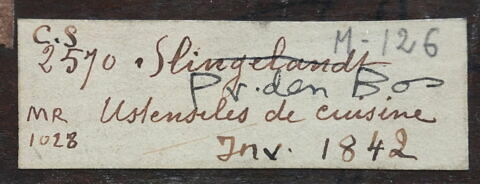 C.S M-126
2570. Slingelandt
P.v. den Bos
MR Ustensiles de cuisine
1028
Inv. 1842